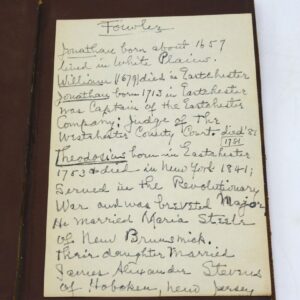 Fowler
Jonathan born about 1657
lived in White Plains.
William (1679) died in Eastchester
Jonathan born 1713 in Eastchester
was Captain of the Eastchester
Company; Judge of the
Westchester County Court. died
1781
Theodosius born in Eastchester
1753 died in New York 1841;
Served in the Revolutionary
War and was breveted Major
He married Maria Steele
of New Brunswick.
Their daughter married
James Alexander Stevens
of Hoboken, New Jersey